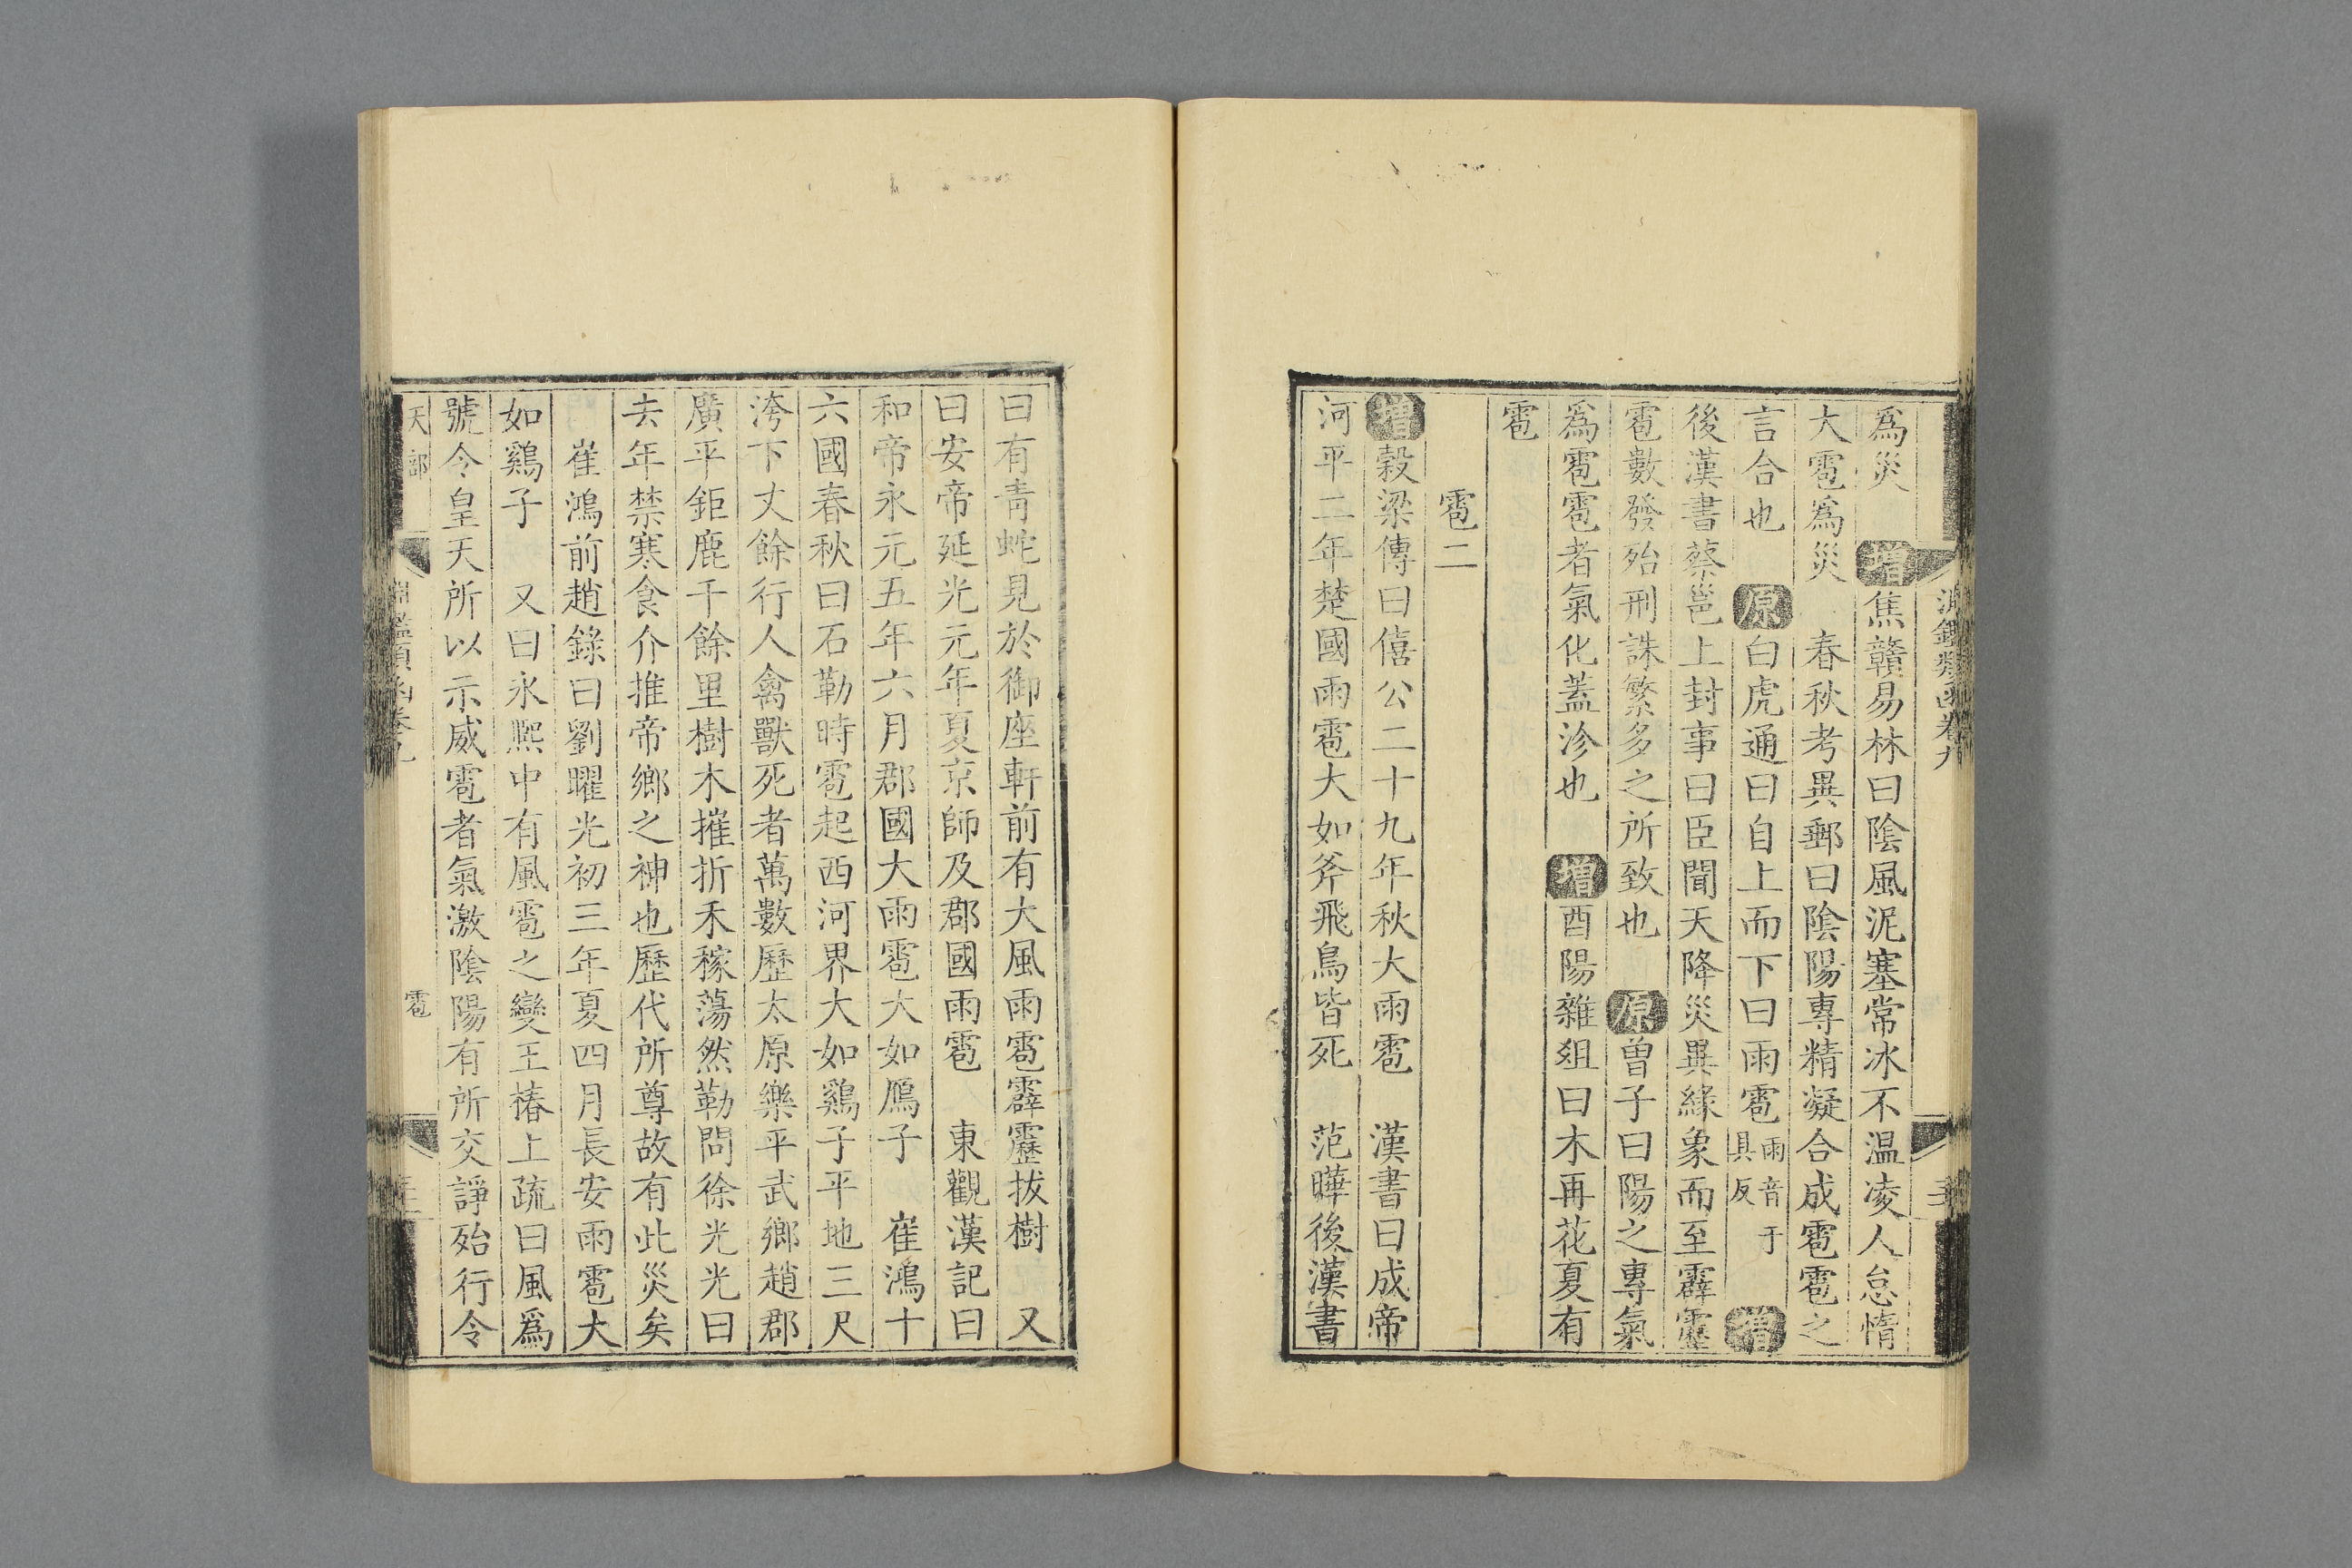 淵鑑類函卷九
爲災 增焦贛易林曰陰風泥塞常冰不温凌人怠惰
大雹爲災 春秋考異郵曰陰陽專精凝合成雹雹之
言合也 原白虎通曰自上而下曰雨雹雨音于具反 增
後漢書蔡邕上封事曰臣聞天降災異緣象而至霹靂
雹數發殆刑誅繁多之所致也 原曾子曰陽之專氣
爲雹雹者氣化蓋沴也 增酉陽雜俎曰木再花夏有
雹
雹二
增穀梁傳曰僖公二十九年秋大雨雹 漢書曰成帝
河平二年楚國雨雹大如斧飛鳥皆死 范曄後漢書
曰有青蛇見於御座軒前有大風雨雹霹靂拔樹 又
曰安帝延光元年夏京師及郡國雨雹 東觀漢記曰
和帝永元五年六月郡國大雨雹大如鴈子 崔鴻十
六國春秋曰石勒時雹起西河界大如鷄子平地三尺
洿下丈餘行人禽獸死者萬數歷太原樂平武鄉趙郡
廣平鉅鹿千餘里樹木摧折禾稼蕩然勒問徐光光曰
去年禁寒食介推帝鄉之神也歷代所尊故有此災矣
崔鴻前趙錄曰劉曜光初三年夏四月長安雨雹大
如鷄子 又曰永熙中有風雹之變王椿上疏曰風爲
號令皇天所以示威雹者氣激陰陽有所交諍殆行令
天部
淵鑑類函卷九
雹